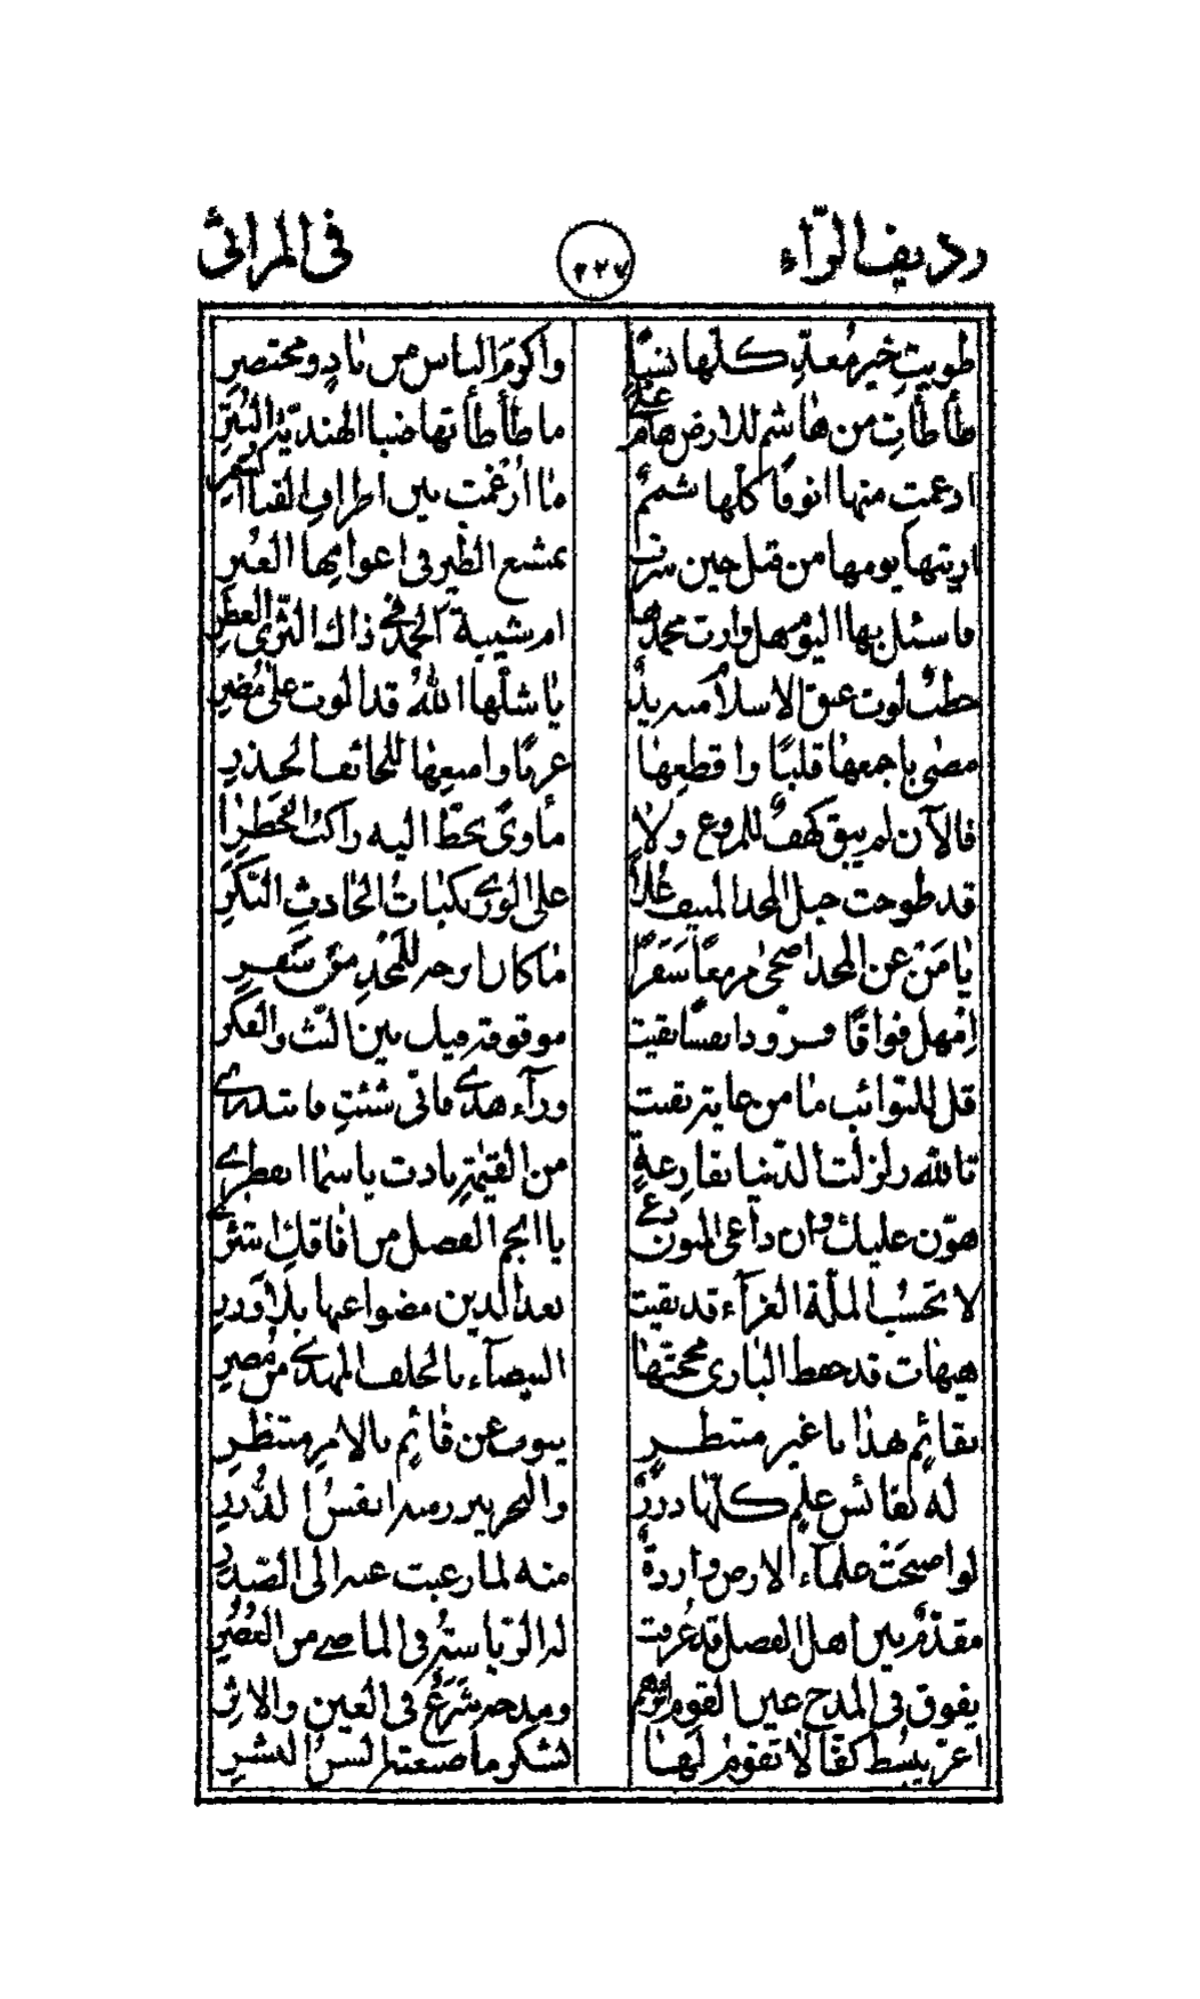 رديف الرّاء ٢٢٧ في المراثي
طويتِ خير مُعدٍّ كلّها نسبًا واكرمَ الناس من بادٍ ومحتضرِ
طأطأتِ من هاشم للارض هام علًا ما طأطأتها ضبا الهنديّة البُترِ
ارغمتِ منها انوفًا كلّها شممٌ ما اُرغمت بين اطراف القنا
اريتها يومها من قبل حين بمشبع الطير في اعوامها الغُبرِ
فاسئل بها اليوم هل وارت محمدها ام شيبة الحمد في ذاك الثرى العطرِ
خطبٌ لوت عنق الاسلام يا شلّها اللهُ قد الوت على مُضرِ
مضى باجمعها قلبًا واقطعها عزمًا وامنعها للخائف الحذرِ
فالآن لم يبق كهفٌ للمروع ولا مأوىً يحطّ اليه راكبُ الخطرِ
قد طوحت جبل المجد المنيف علًا على الورى نكباتُ الحادث النَكرِ
يا مَن عن المجد اضحى مزمعًا سَفَرًا ما كان ارجه للمجدِ من سَفرِ
اِمهل فواقًا فزوّد انفسًا بقيت موقوفة فيك بين البثّ والفكر
قل للنوائب ما من غاية بقيت ورآء هذي فانّى شئتِ فابتدري
تالله زلزلت الدّنيا بقارعةٍ من القيمة نادت يا سما انفطري
هوّن عليك وان داعى المنون دُعي يا انجم الفضل من افاقك انتثري
لا تحسب الملّة الغرآء قد بقيت بعد الذين مضوا عنها بلا وَزرِ
هيهات قد حفظ الباري محجّتها البيضاء بالخلف المهديّ من مُضرِ
بقائمٍ هذا يا غير منتظرٍ ينوب عن قائمٍ بالامرِ منتظرِ
له نفائس علمٍ كلّها دررٌ والبحر يبرز منه انفسُ الدُررِ
لو اصبحَتْ علمآء الارض واردةً منه لما رغبت عنه الى الصّدرِ
مقدّمٌ بين اهل الفضل قد عُرفت له الرياسة في الماضي من العُصُرِ
يفوق في المدح عين القوم ومدحه شَرَعٌ في العين والاثرِ
اغرّ يبسُط كفًّا لا تقوم لها لشكر ما صنعته السنُ البشرِ